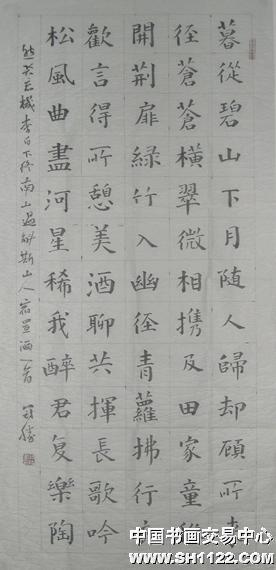 暮從碧山下月随人歸却顧所來
径蒼蒼橫翠微相携及田家童稚
開荆扉綠竹入幽径青蘿拂行衣
歡言得所憩美酒聊共揮長歌吟
松風曲盡河星稀我醉君复樂陶
然共忘機李白下终南山過斛斯山人宿置酒一首
中国书画交易中心
www.SH1122.com